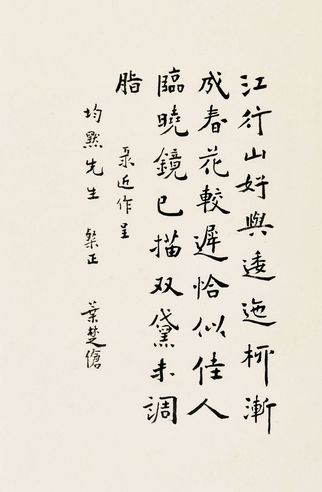 江行山好與逶迤柳漸
成春花較遲恰似佳人
臨曉鏡已描双黛未調
脂
录近作呈
均默先生 棨正
葉楚傖